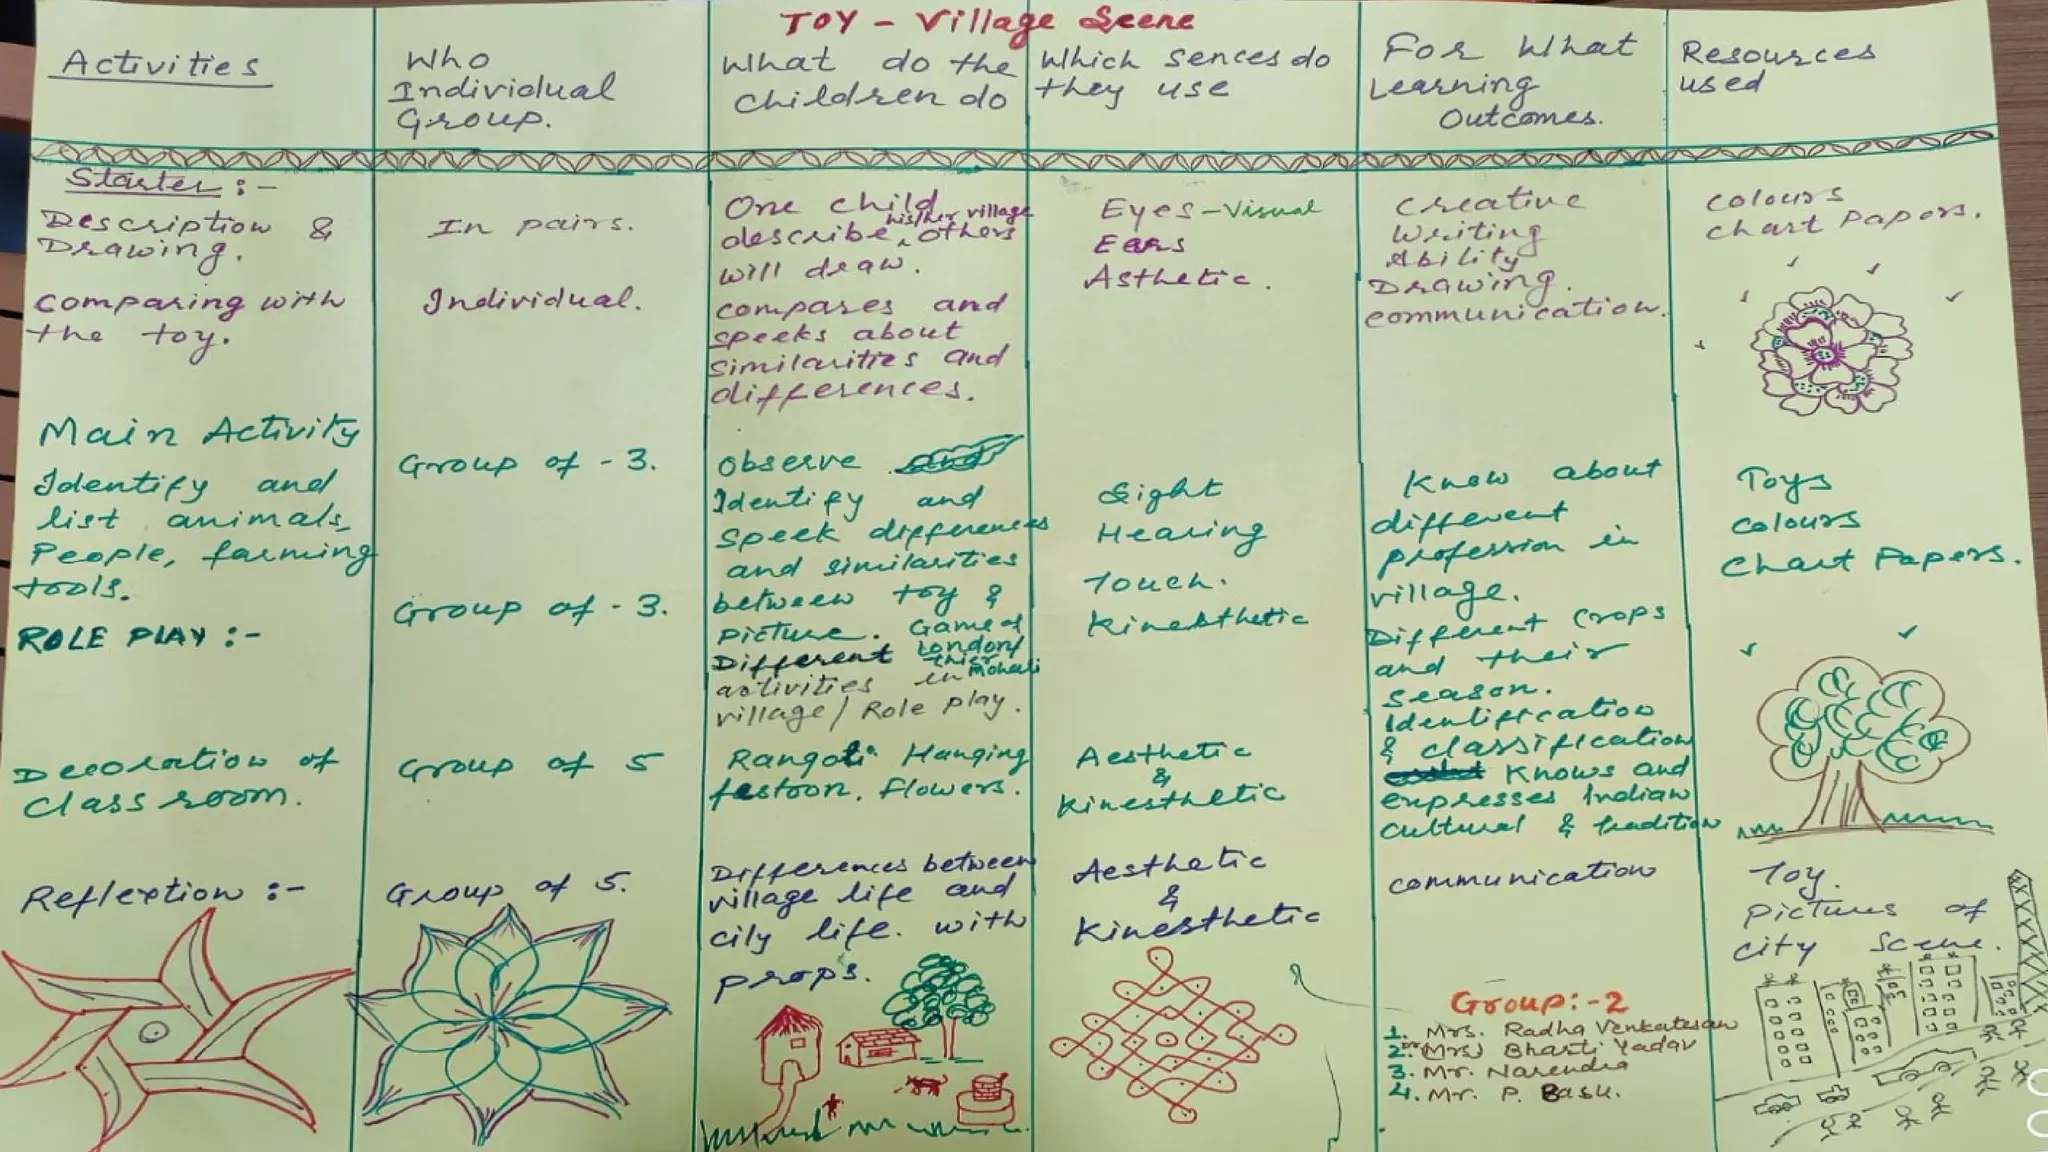 TOY - Village Scene
Activities
Who
Individual
Group.
What do the
children do
Which sences do
they use
For What
Learning
Outcomes.
Resources
used
Starter :-
Description &
Drawing.
comparing with
the toy.
In pairs.
Individual.
One child
his/her village
describe, others
will draw.
compares and
speeks about
similarities and
differences.
Eyes - Visual
Ears
Asthetic.
Creative
Writing
Ability
Drawing.
communication.
colours
chart papers.
Main Activity
Identify and
list animals,
People, farming
tools.
ROLE PLAY :-
Group of - 3.
Group of - 3.
Observe
Identify and
speek differences
and similarities
between toy &
picture. Game of
Different London/
thier Mohali
activities in
village/ Role play.
Sight
Hearing
Touch.
Kinesthetic
Know about
different
profession in
village.
Different Crops
and their
season.
Identification
& classification
Knows and
expresses Indian
cultural & tradition
Toys
colours
Chart Papers.
Decoration of
class room.
Group of 5
Rangoli Hanging
festoon, flowers.
Aesthetic
&
Kinesthetic
Reflextion :-
Group of 5.
Differences between
village life and
city life. with
props.
Aesthetic
&
Kinesthetic
communication
Toy.
pictures of
city scene.
Group:-2
1. Mrs. Radha Venkatesan
2. Dr (Mrs) Bharti Yadav
3. Mr. Narendra
4. Mr. P. Basu.